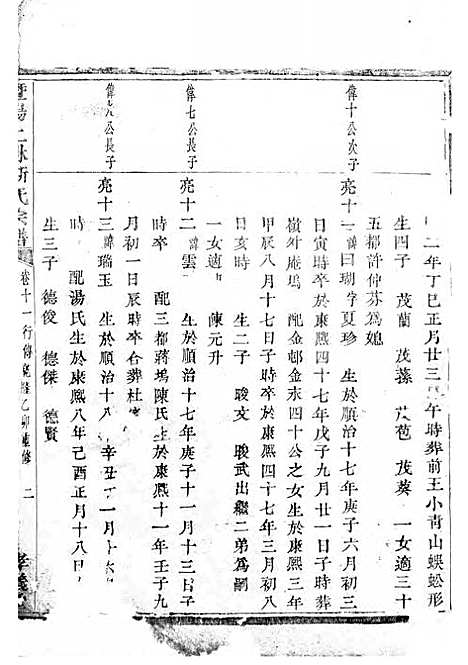 二年丁巳正月廿三 午時葬前王小青山蜈蚣形
生四子 茂蘭 茂蓀 茂苞 茂葵 一女適三十
五都許仲芬為媳
偉十公次子 亮十一 諱曰瑚 字夏珍 生於順治十七年庚子六月初三
日寅時卒於康熙四十七年戊子九月廿一日子時葬
嶺外庵塢 配金邨金水四十公之女生於康熙三年
甲辰八月十七日子時卒於康熙四十七年三月初八
日亥時 生二子 駿文 駿武出繼二弟為嗣
一女適 陳元升
偉七公長子 亮十二 諱雲 生於順治十七年庚子十一月十三日子
時卒 配三都蔣塢陳氏生於康熙十一年壬子九
月初一日辰時卒合葬杜
偉九公長子 亮十三 諱瑞玉 生於順治十八 辛丑十一月十六
時 配湯氏生於康熙八年己酉正月十八日
生三子 德俊 德傑 德賢
暨陽 氏宗譜 卷十一 行傳 乙卯重修 二 孝義